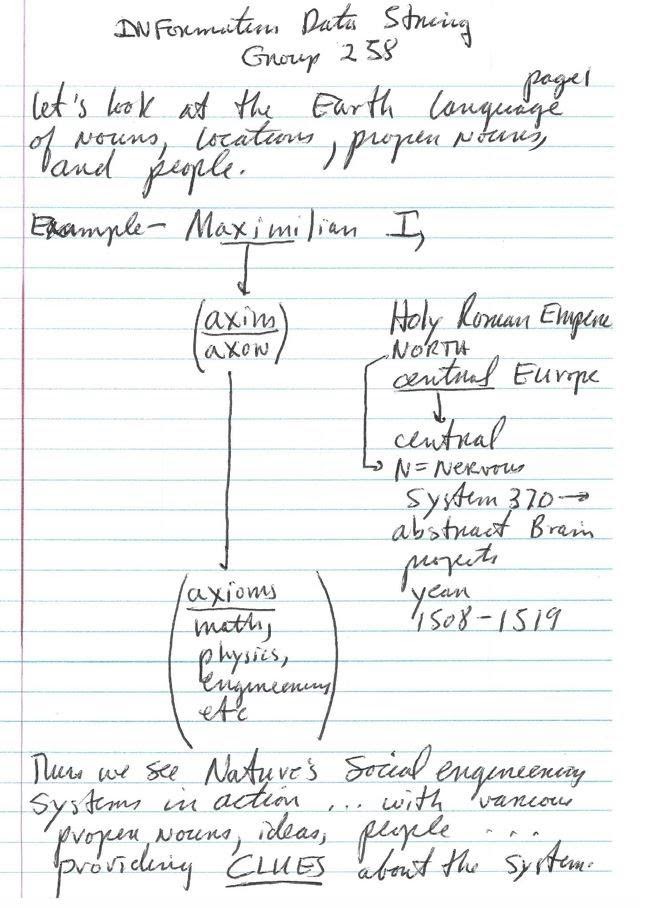 INFormation Data String
Group 258
page 1
Let's look at the Earth Language
of Nouns, locations, proper nouns,
and people.
Example - Maximilian I,
(axim
axon)
Holy Roman Empire
NORTH
central Europe
central
N = Nervous
System 370 →
abstract Brain
projects
year
1508-1519
(axioms
math,
physics,
engineering
etc)
Thus we see Nature's Social engineering
systems in action ... with various
proper nouns, ideas, people ...
providing CLUES about the system.